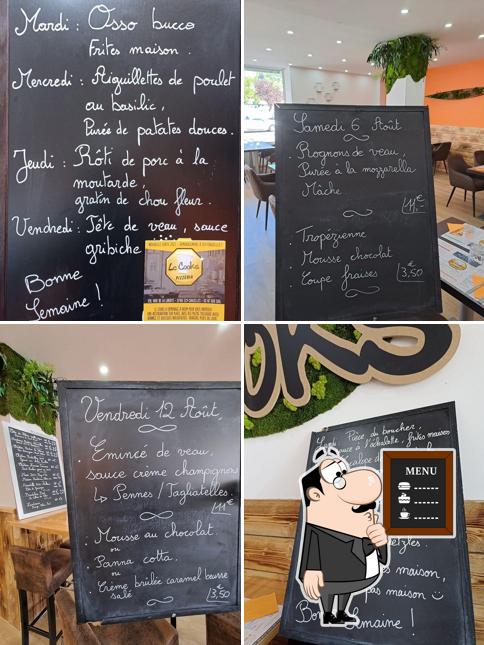 Mardi : Osso bucco
Frites maison .
Mercredi : Aiguillettes de poulet
au basilic ,
Purée de patates douces .
Jeudi : Rôti de porc à la
moutarde ,
gratin de chou fleur .
Vendredi : Tête de veau , sauce
gribiche
Bonne
Semaine !
Le Cooks
PIZZERIA
Samedi 6 Août
. Rognons de veau ,
Purée a la mozzarella
Mâche
11€
. Tropézienne
. Mousse chocolat
. Coupe fraises
€
3,50
Vendredi 12 Août
. Emincé de veau ,
sauce crème champignons
↳ Pennes / Tagliatelles .
11€
. Mousse au chocolat .
ou
. Panna cotta .
ou
. Crème brûlée caramel beurre
salé
3,50
Pièce du boucher ,
à l'échalotte , frites maison
MENU
maison ,
pas maison ☺
Bon
Semaine !